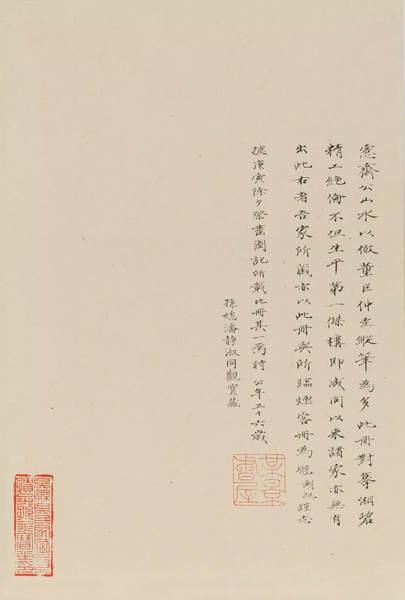 愙齋公山水以倣董巨仲圭縱筆為多此冊對摹湘碧
精工絕倫不但生平第一傑構即咸同以來諸家亦無有
出此右者吾家所藏亦以此冊與所臨煙客冊為
據庚寅除夕祭書圖記所載此冊其一焉時 公年五十六歲
孫媳潘靜淑同觀寶藏